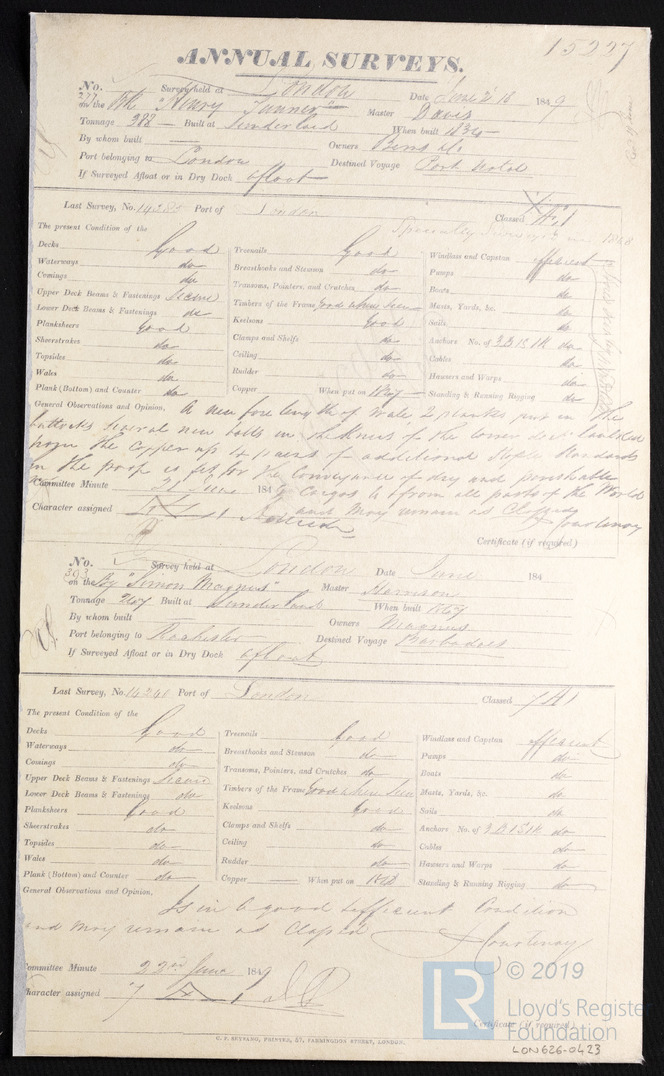 15227
ANNUAL SURVEYS.
No. 277 Survey held at London Date June 2 16 1849
on the Bk "Henry Tanner" Master Davis
Tonnage 388 Built at Sunderland When built 1834
By whom built Owners
Port belonging to London Destined Voyage Port Natal
If Surveyed Afloat or in Dry Dock afloat
Last Survey, No. Port of London Classed A1
Specially Surveyed
The present Condition of the
Decks Good Treenails Good Windlass and Capstan efficient
Waterways do Breasthooks and Stemson do Pumps do
Comings do Transoms, Pointers, and Crutches do Boats do
Upper Deck Beams & Fastenings Seame Timbers of the Frame Good when seen Masts, Yards, &c. do
Lower Deck Beams & Fastenings do Keelsons Good Sails do
Planksheers Good Clamps and Shelfs do Anchors No. of 3 B 1 S 1 K do
Sheerstrakes do Ceiling do Cables do
Topsides do Rudder do Hawsers and Warps do
Wales do Copper When put on 1847 Standing & Running Rigging do
Plank (Bottom) and Counter do
General Observations and Opinion, A new fore length of Wale 2 planks put in the
buttocks several new bolts in the knees of the lower deck caulked
from the copper up 4 pairs of additional Staple Standards
in the poop is fit for the conveyance of dry and perishable
Cargos to & from all parts of the World
Committee Minute 21 June 184
and may remain as Classed
Character assigned Courtenay
Certificate (if required)
No. 393 Survey held at London Date June 184
on the Bg "Simon Magnus" Master Harrison
Tonnage 267 Built at Sunderland When built
By whom built Owners Magnus
Port belonging to Rochester Destined Voyage Barbadoes
If Surveyed Afloat or in Dry Dock afloat
Last Survey, No. Port of London Classed 7 A1
The present Condition of the
Decks Good Treenails Good Windlass and Capstan efficient
Waterways do Breasthooks and Stemson do Pumps do
Comings do Transoms, Pointers, and Crutches do Boats do
Upper Deck Beams & Fastenings Timbers of the Frame Good when seen Masts, Yards, &c. do
Lower Deck Beams & Fastenings do Keelsons Good Sails do
Planksheers Good Clamps and Shelfs do Anchors No. of 3 B 1 S 1 K do
Sheerstrakes do Ceiling do Cables do
Topsides do Rudder do Hawsers and Warps do
Wales do Copper When put on Standing & Running Rigging do
Plank (Bottom) and Counter do
General Observations and Opinion,
Is in a good & efficient Condition
and may remain as Classed
Courtenay
Committee Minute 22nd June 1849
Character assigned 7 A 1
Certificate (if required)
C. F. SEYFANG, PRINTER, 57, FARRINGDON STREET, LONDON.
LR © 2019
Lloyd's Register
Foundation
LON626-0423